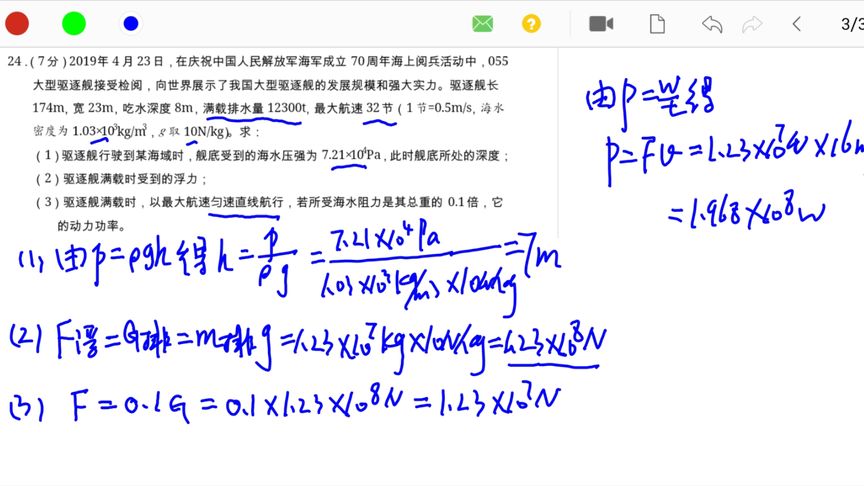 3/3
24.(7分)2019年4月23日,在庆祝中国人民解放军海军成立70周年海上阅兵活动中,055
大型驱逐舰接受检阅,向世界展示了我国大型驱逐舰的发展规模和强大实力。驱逐舰长
174m,宽23m,吃水深度8m,满载排水量12300t,最大航速32节(1节=0.5m/s,海水
密度为1.03×10³kg/m³,g取10N/kg)。求:
(1)驱逐舰行驶到某海域时,舰底受到的海水压强为7.21×10⁴Pa,此时舰底所处的深度;
(2)驱逐舰满载时受到的浮力;
(3)驱逐舰满载时,以最大航速匀速直线航行,若所受海水阻力是其总重的0.1倍,它
的动力功率。
(1)由p=ρgh得h=p/ρg=7.21×10⁴Pa/1.03×10³kg/m³×10N/kg=7m
(2)F浮=G排=m排g=1.23×10⁷kg×10N/kg=1.23×10⁸N
(3) F=0.1G=0.1×1.23×10⁸N=1.23×10⁷N
由P=W/t得
P=Fv=1.23×10⁷N×16m
=1.968×10⁸W